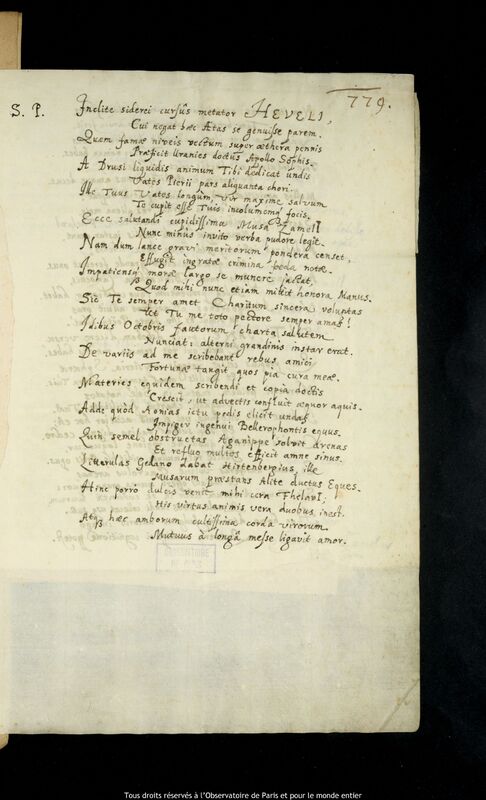 779.
S. P.
Inclite siderei cursûs metator HEVELI,
Cui negat hæc Ætas se genuisse parem.
Quem famæ niveis vectum super æthera pennis
Præficit Uranies doctus Apollo Sophis.
A Drusi liquidis animum Tibi dedicat undis
Vates Pierii pars aliquanta chori.
Ille Tuus Vates longum, vir maxime, salvum
Te cupit esse Tuis incolumemq focis.
Ecce salutandi cupidissima Musa
Nunc minus invito verba pudore legit.
Nam dum lance gravi meritorum pondera censet,
Effugit ingratæ crimina fœda notæ.
Impatiensq moræ largo se munere jactat,
Quod mihi nunc etiam mittit honora Manus.
Sic Te semper amet Charitum sincera voluntas
Ut Tu me toto pectore semper amas!
Idibus Octobris fautorum charta salutem
Nunciat: alterni grandinis instar erat.
De variis ad me scribebant rebus amici
Fortunæ tangit quos pia cura meæ.
Materies equidem scribendi et copia doctis
Crescit, ut advectis confluit æquor aquis.
Adde quod Aonias ictu pedis elicit undas
Impiger ingenui Bellerophontis equus.
Quin semel obstructas Aganippe solvit arenas
Et refluo multos efficit amne sinus.
Litterulas Gedano dabat Hirtenbergius, ille
Musarum præstans Alite ductus Eques.
Hinc porrò dulcis venit mihi cera
His virtus animis vera duobus inest.
Atq hæc amborum cultissima corda virorum
Mutuus à longâ messe ligavit amor.
OBSERVATOIRE
DE PARIS
Tous droits réservés à l'Observatoire de Paris et pour le monde entier